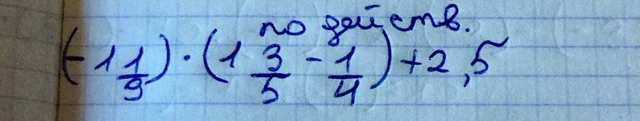 по действ.
(-1 1/9) · (1 3/5 - 1/4) + 2,5